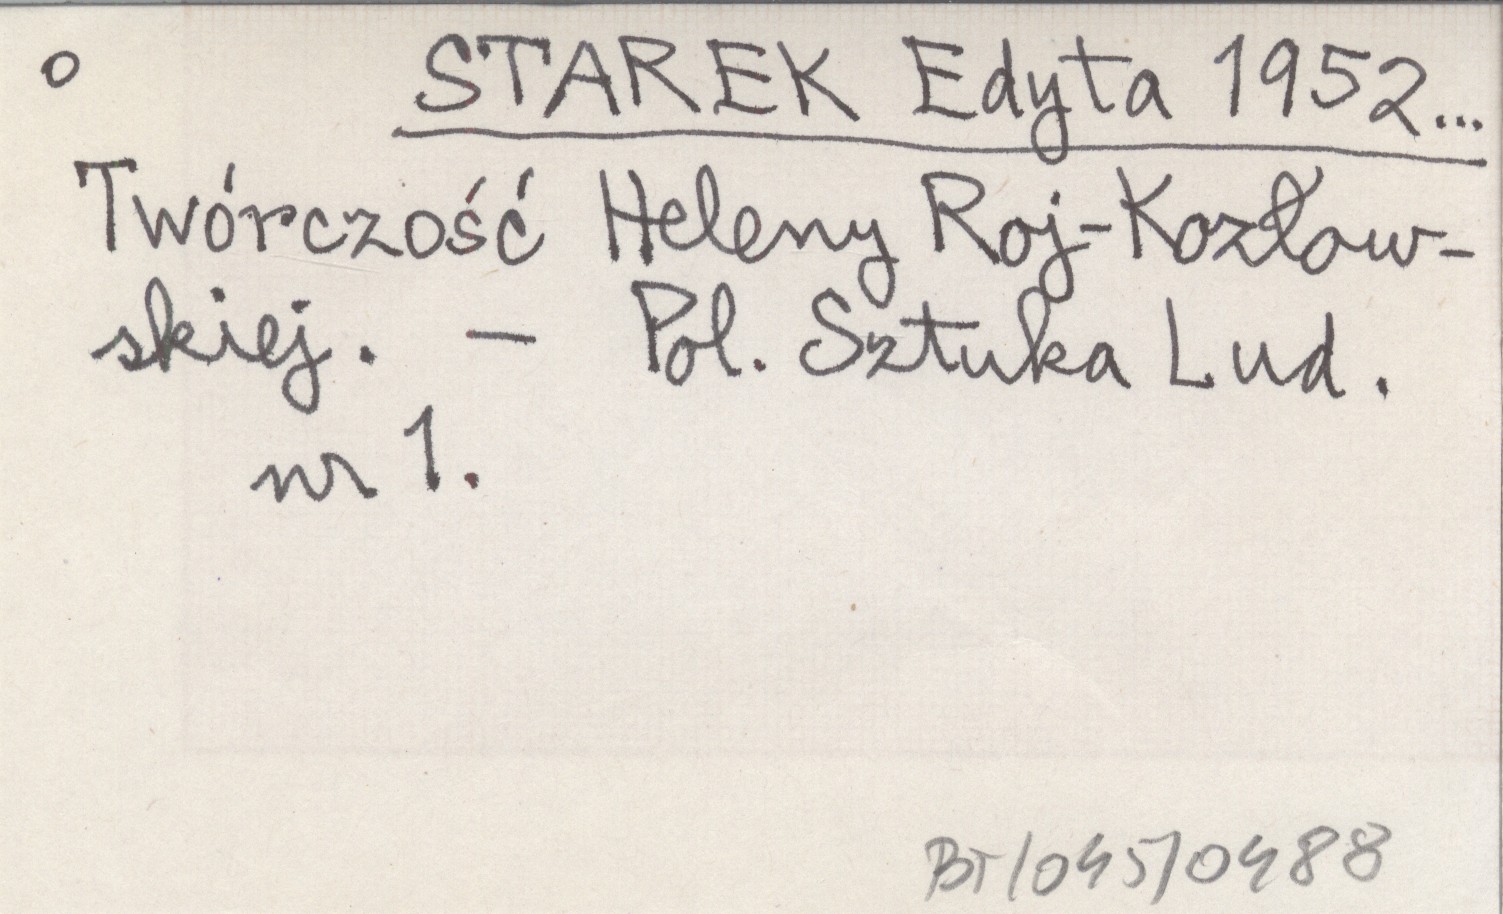 o STAREK Edyta 1952...
Twórczość Heleny Roj-Kozłow-
skiej. - Pol. Sztuka Lud.
nr 1.
BT/045/0488